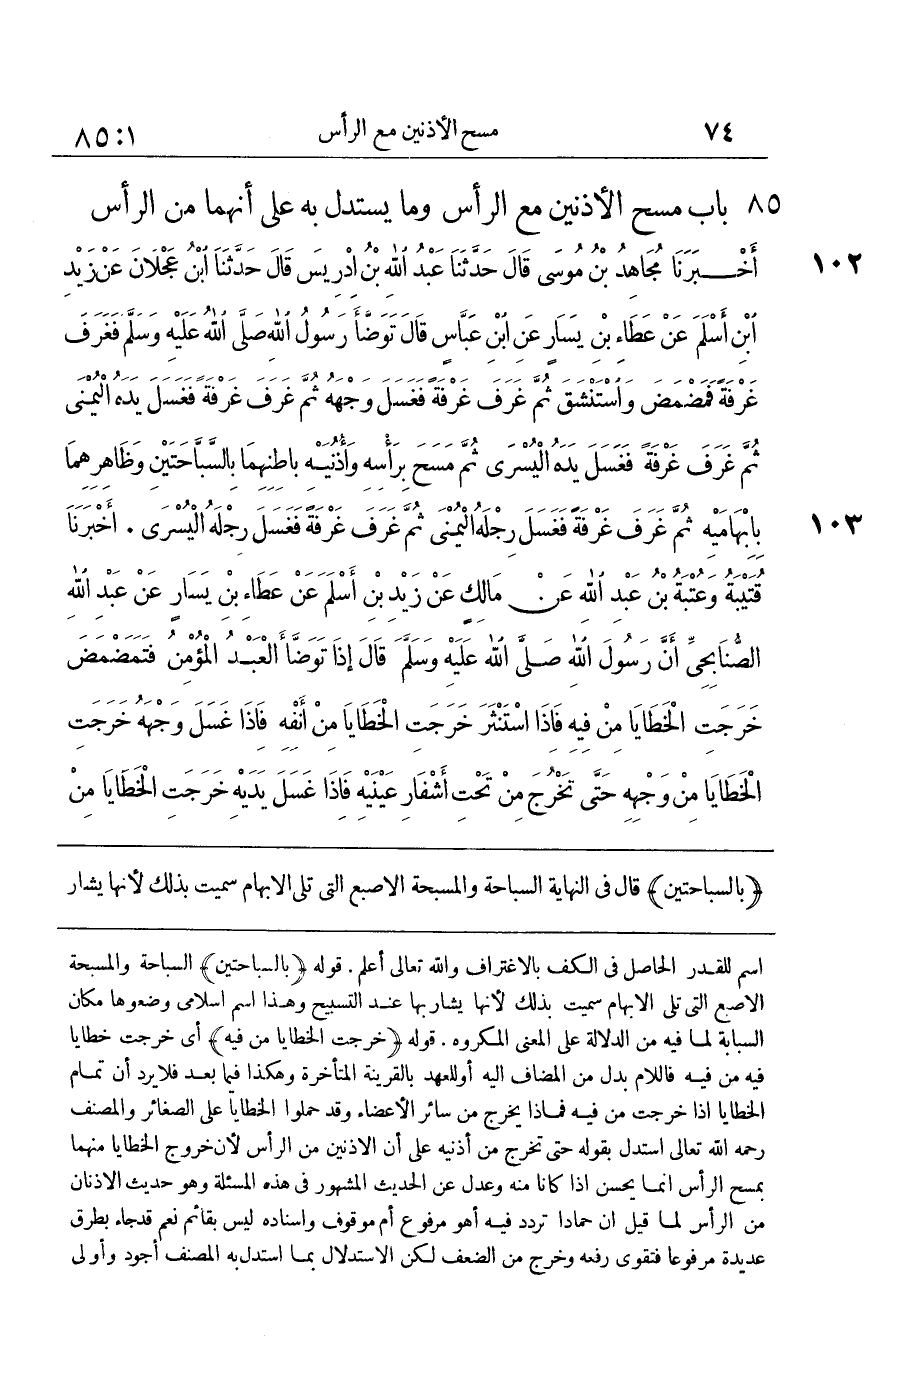 ٧٤ مسح الأذنين مع الرأس ٨٥:١
٨٥ باب مسح الأذنين مع الرأس وما يستدل به على أنهما من الرأس
١٠٢ أَخْبَرَنَا مُجَاهِدُ بْنُ مُوسَى قَالَ حَدَّثَنَا عَبْدُ اللهِ بْنُ إِدْرِيسَ قَالَ حَدَّثَنَا ابْنُ عَجْلَانَ عَنْ زَيْدِ
ابْنِ أَسْلَمَ عَنْ عَطَاءِ بْنِ يَسَارٍ عَنِ ابْنِ عَبَّاسٍ قَالَ تَوَضَّأَ رَسُولُ اللهِ صَلَّى اللهُ عَلَيْهِ وَسَلَّمَ فَغَرَفَ
غَرْفَةً فَمَضْمَضَ وَاسْتَنْشَقَ ثُمَّ غَرَفَ غَرْفَةً فَغَسَلَ وَجْهَهُ ثُمَّ غَرَفَ غَرْفَةً فَغَسَلَ يَدَهُ الْيُمْنَى
ثُمَّ غَرَفَ غَرْفَةً فَغَسَلَ يَدَهُ الْيُسْرَى ثُمَّ مَسَحَ بِرَأْسِهِ وَأُذُنَيْهِ بَاطِنِهِمَا بِالسَّبَّاحَتَيْنِ وَظَاهِرِهِمَا
١٠٣ بِإِبْهَامَيْهِ ثُمَّ غَرَفَ غَرْفَةً فَغَسَلَ رِجْلَهُ الْيُمْنَى ثُمَّ غَرَفَ غَرْفَةً فَغَسَلَ رِجْلَهُ الْيُسْرَى . أَخْبَرَنَا
قُتَيْبَةُ وَعُتْبَةُ بْنُ عَبْدِ اللهِ عَنْ مَالِكٍ عَنْ زَيْدِ بْنِ أَسْلَمَ عَنْ عَطَاءِ بْنِ يَسَارٍ عَنْ عَبْدِ اللهِ
الصُّنَابِحِيِّ أَنَّ رَسُولَ اللهِ صَلَّى اللهُ عَلَيْهِ وَسَلَّمَ قَالَ إِذَا تَوَضَّأَ الْعَبْدُ الْمُؤْمِنُ فَتَمَضْمَضَ
خَرَجَتِ الْخَطَايَا مِنْ فِيهِ فَإِذَا اسْتَنْثَرَ خَرَجَتِ الْخَطَايَا مِنْ أَنْفِهِ فَإِذَا غَسَلَ وَجْهَهُ خَرَجَتِ
الْخَطَايَا مِنْ وَجْهِهِ حَتَّى تَخْرُجَ مِنْ تَحْتِ أَشْفَارِ عَيْنَيْهِ فَإِذَا غَسَلَ يَدَيْهِ خَرَجَتِ الْخَطَايَا مِنْ
﴿بالسباحتين﴾ قال فى النهاية السباحة والمسبحة الاصبع التى تلى الابهام سميت بذلك لأنها يشار
اسم للقدر الحاصل فى الكف بالاغتراف والله تعالى أعلم . قوله ﴿بالسباحتين﴾ السباحة والمسبحة
الاصبع التى تلى الابهام سميت بذلك لأنها يشار بها عند التسبيح وهذا اسم اسلامى وضعوها مكان
السبابة لما فيه من الدلالة على المعنى المكروه . قوله ﴿خرجت الخطايا من فيه﴾ أى خرجت خطايا
فيه من فيه فاللام بدل من المضاف اليه أو للعهد بالقرينة المتأخرة وهكذا فيما بعد فلا يرد أن تمام
الخطايا اذا خرجت من فيه فماذا يخرج من سائر الأعضاء وقد حملوا الخطايا على الصغائر والمصنف
رحمه الله تعالى استدل بقوله حتى تخرج من أذنيه على أن الاذنين من الرأس لأن خروج الخطايا منهما
بمسح الرأس انما يحسن اذا كانا منه وعدل عن الحديث المشهور فى هذه المسئلة وهو حديث الاذنان
من الرأس لما قيل ان حمادا تردد فيه أهو مرفوع أم موقوف واسناده ليس بقائم نعم قد جاء بطرق
عديدة مرفوعا فتقوى رفعه وخرج من الضعف لكن الاستدلال بما استدل به المصنف أجود وأولى